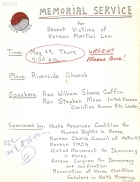 MEMORIAL SERVICE
for
Recent Victims of
Korean Martial Law
Time: May 29, Thurs.
5:30 pm
URGENT
Please Come!
Place: Riverside Church
Speakers: Rev. William Sloane Coffin
Rev. Stephen Moon (United Korean
Christian Church, LA)
Sponsored by: North American Coalition for
Human Rights in Korea
Korean Church Council of
Korean YMCA
United Movement for Democracy
in Korea
Korean Congress for Democracy
and Unification
Association of Korean Christian
Scholars in North America